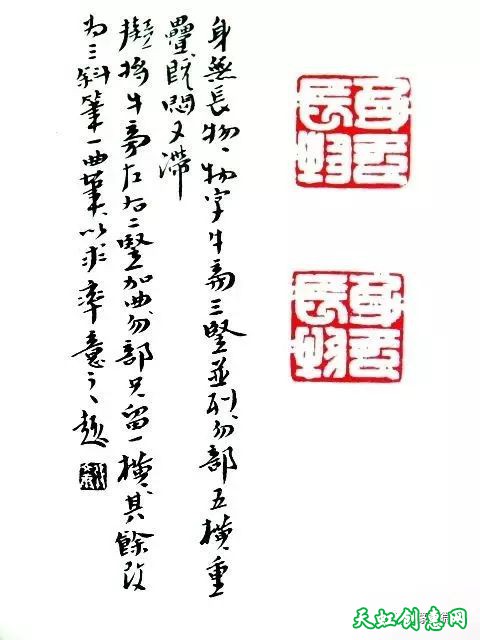 身无長物
身无長物
身無長物、物字牛旁三竪並列勿部五橫重
疊既悶又滯
擬將牛旁左右二竪加曲勿部只留一橫其餘改
为三斜筆一曲筆以求率意之趣
天虹创意网